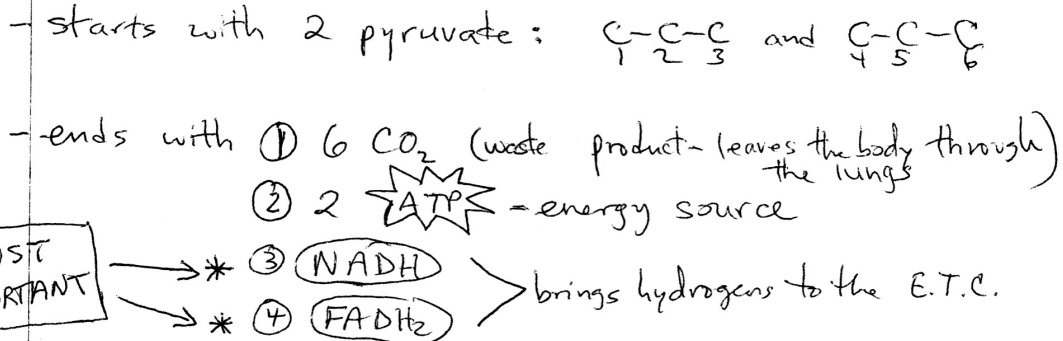 - starts with 2 pyruvate: C-C-C and C-C-C
1 2 3 4 5 6
- ends with ① 6 CO₂ (waste product - leaves the body through the lungs)
② 2 ATP - energy source
* ③ NADH
* ④ FADH₂
brings hydrogens to the E.T.C.